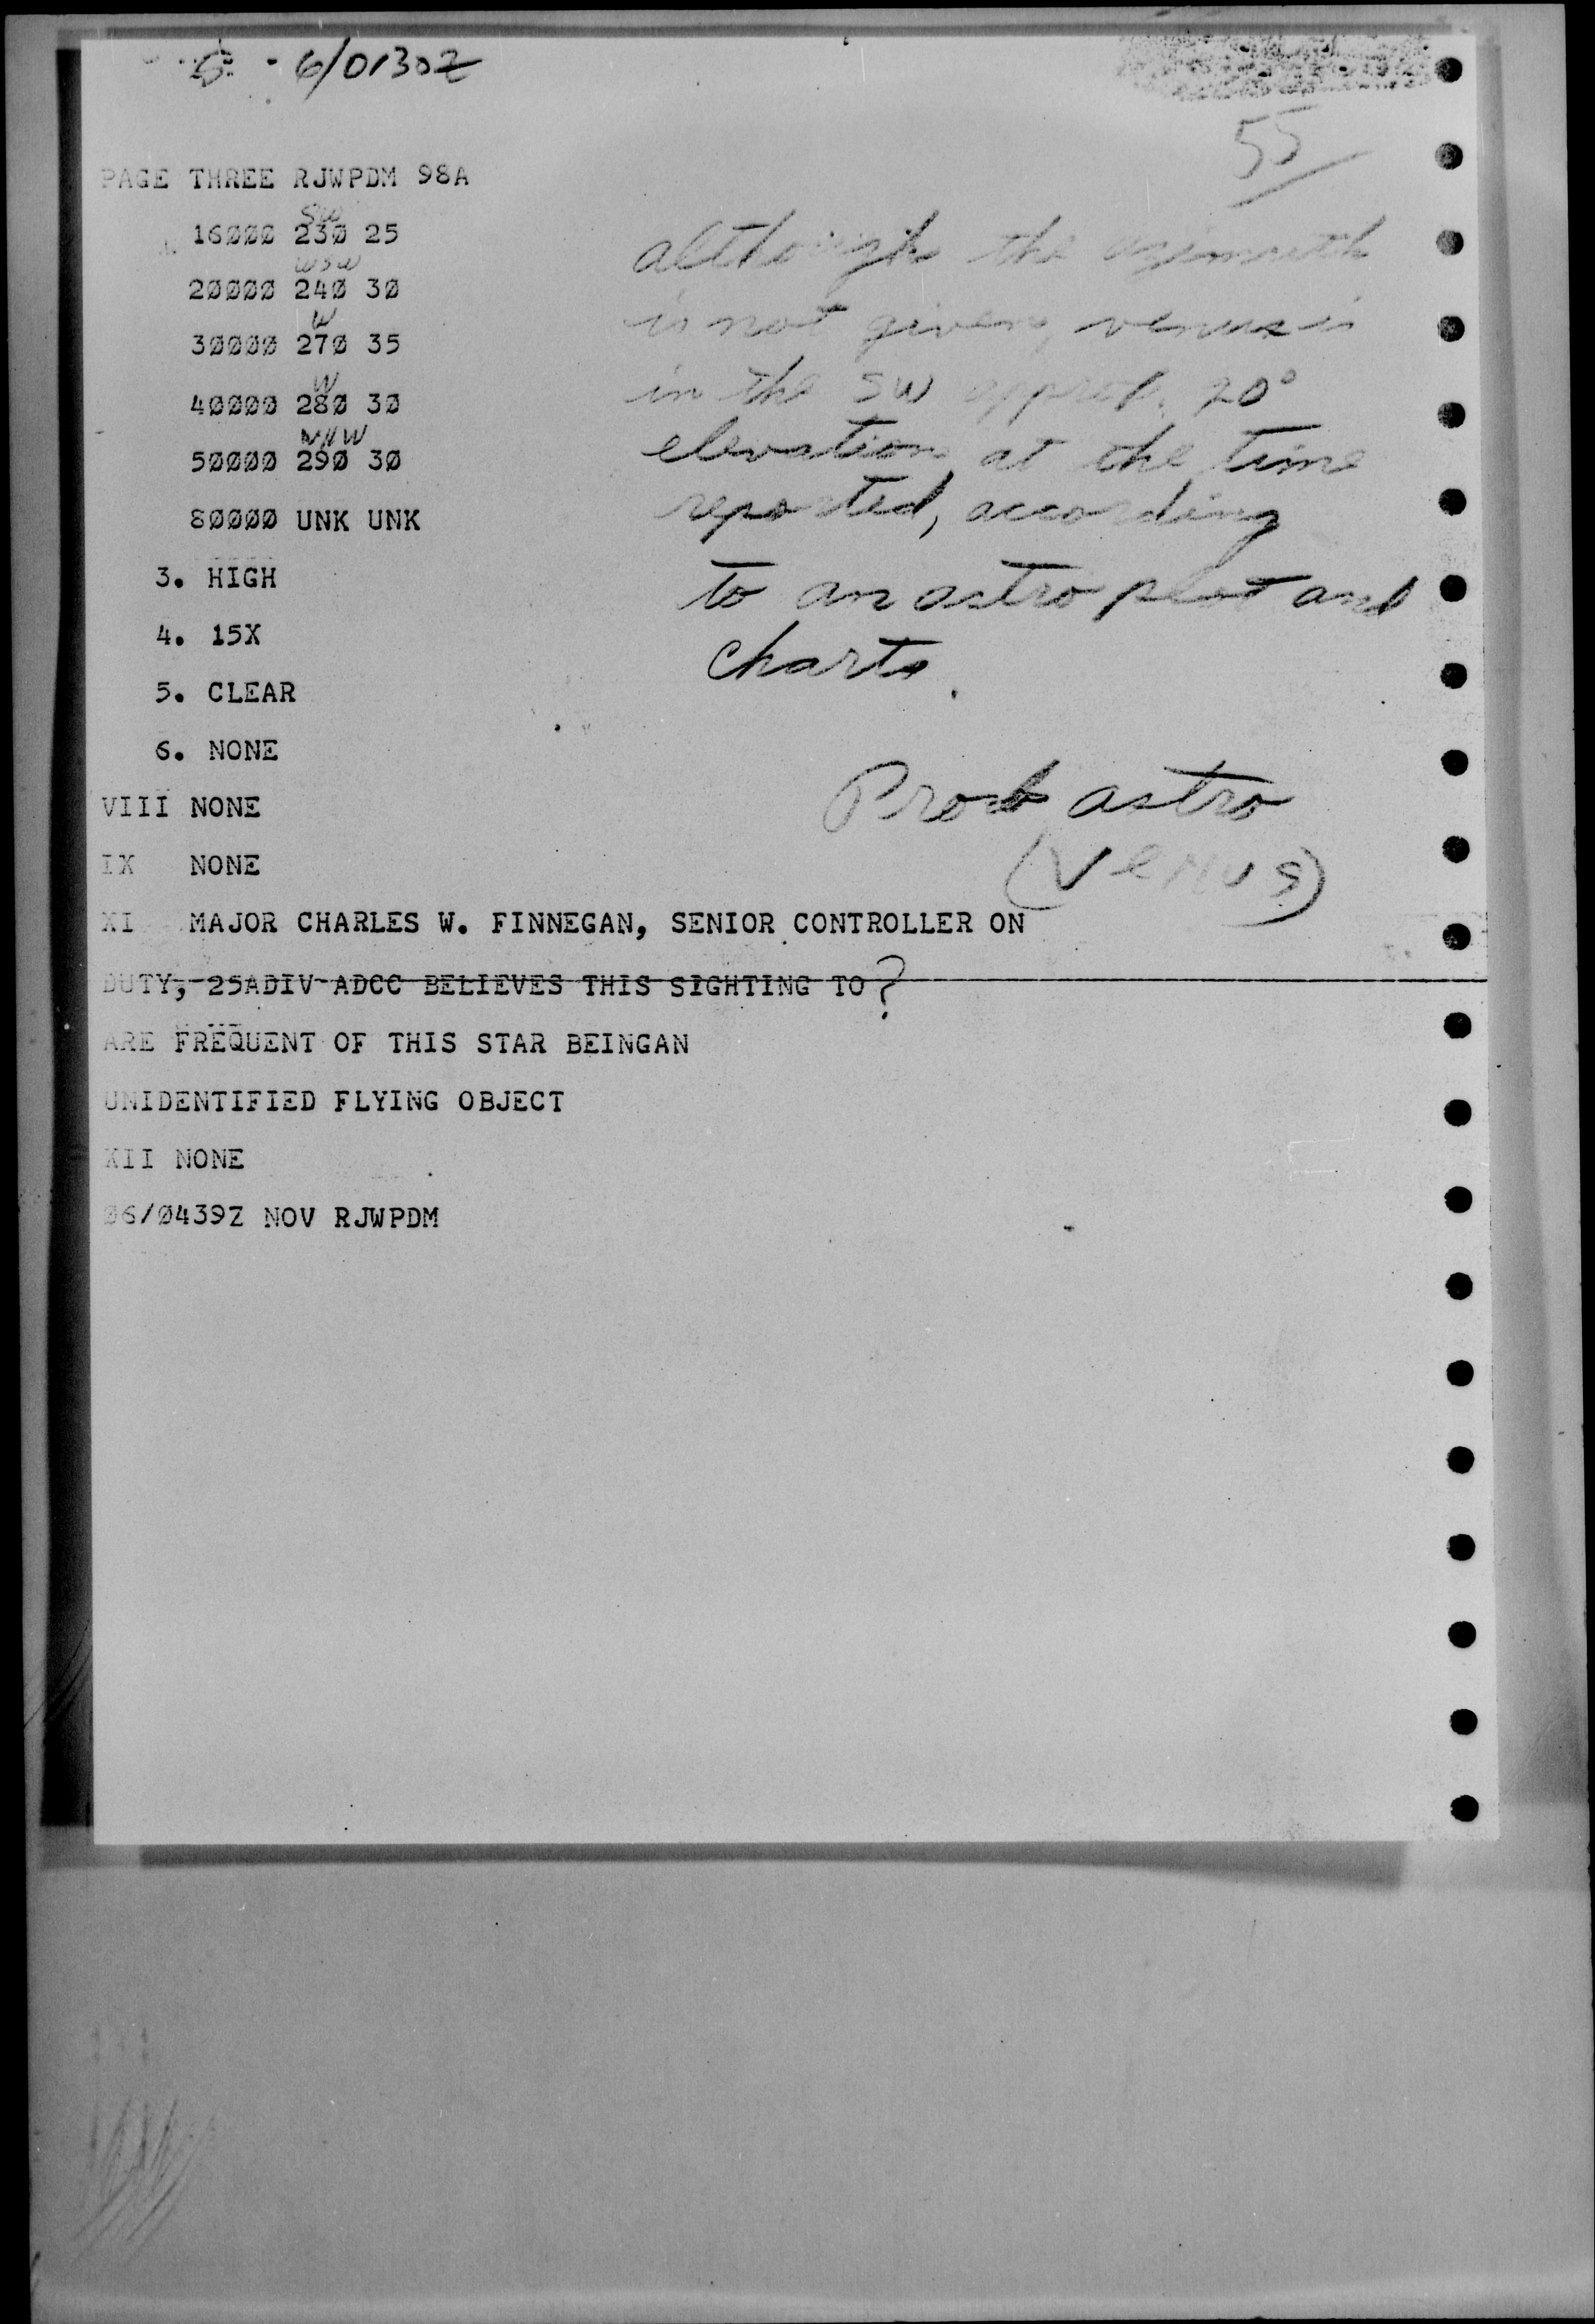 6/0130Z
55
PAGE THREE RJWPDM 98A
SW
16000 230 25
WSW
20000 240 30
W
30000 270 35
W
40000 280 30
WNW
50000 290 30
80000 UNK UNK
3. HIGH
4. 15X
5. CLEAR
6. NONE
VIII NONE
IX NONE
XI MAJOR CHARLES W. FINNEGAN, SENIOR CONTROLLER ON
DUTY, 25ADIV ADCC BELIEVES THIS SIGHTING TO ?
ARE FREQUENT OF THIS STAR BEINGAN
UNIDENTIFIED FLYING OBJECT
XII NONE
06/0439Z NOV RJWPDM
although the azimuth
is not given, venus is
in the SW approx. 20°
elevation at the time
reported, according
to an astro plot and
charts.
Prob astro
(Venus)